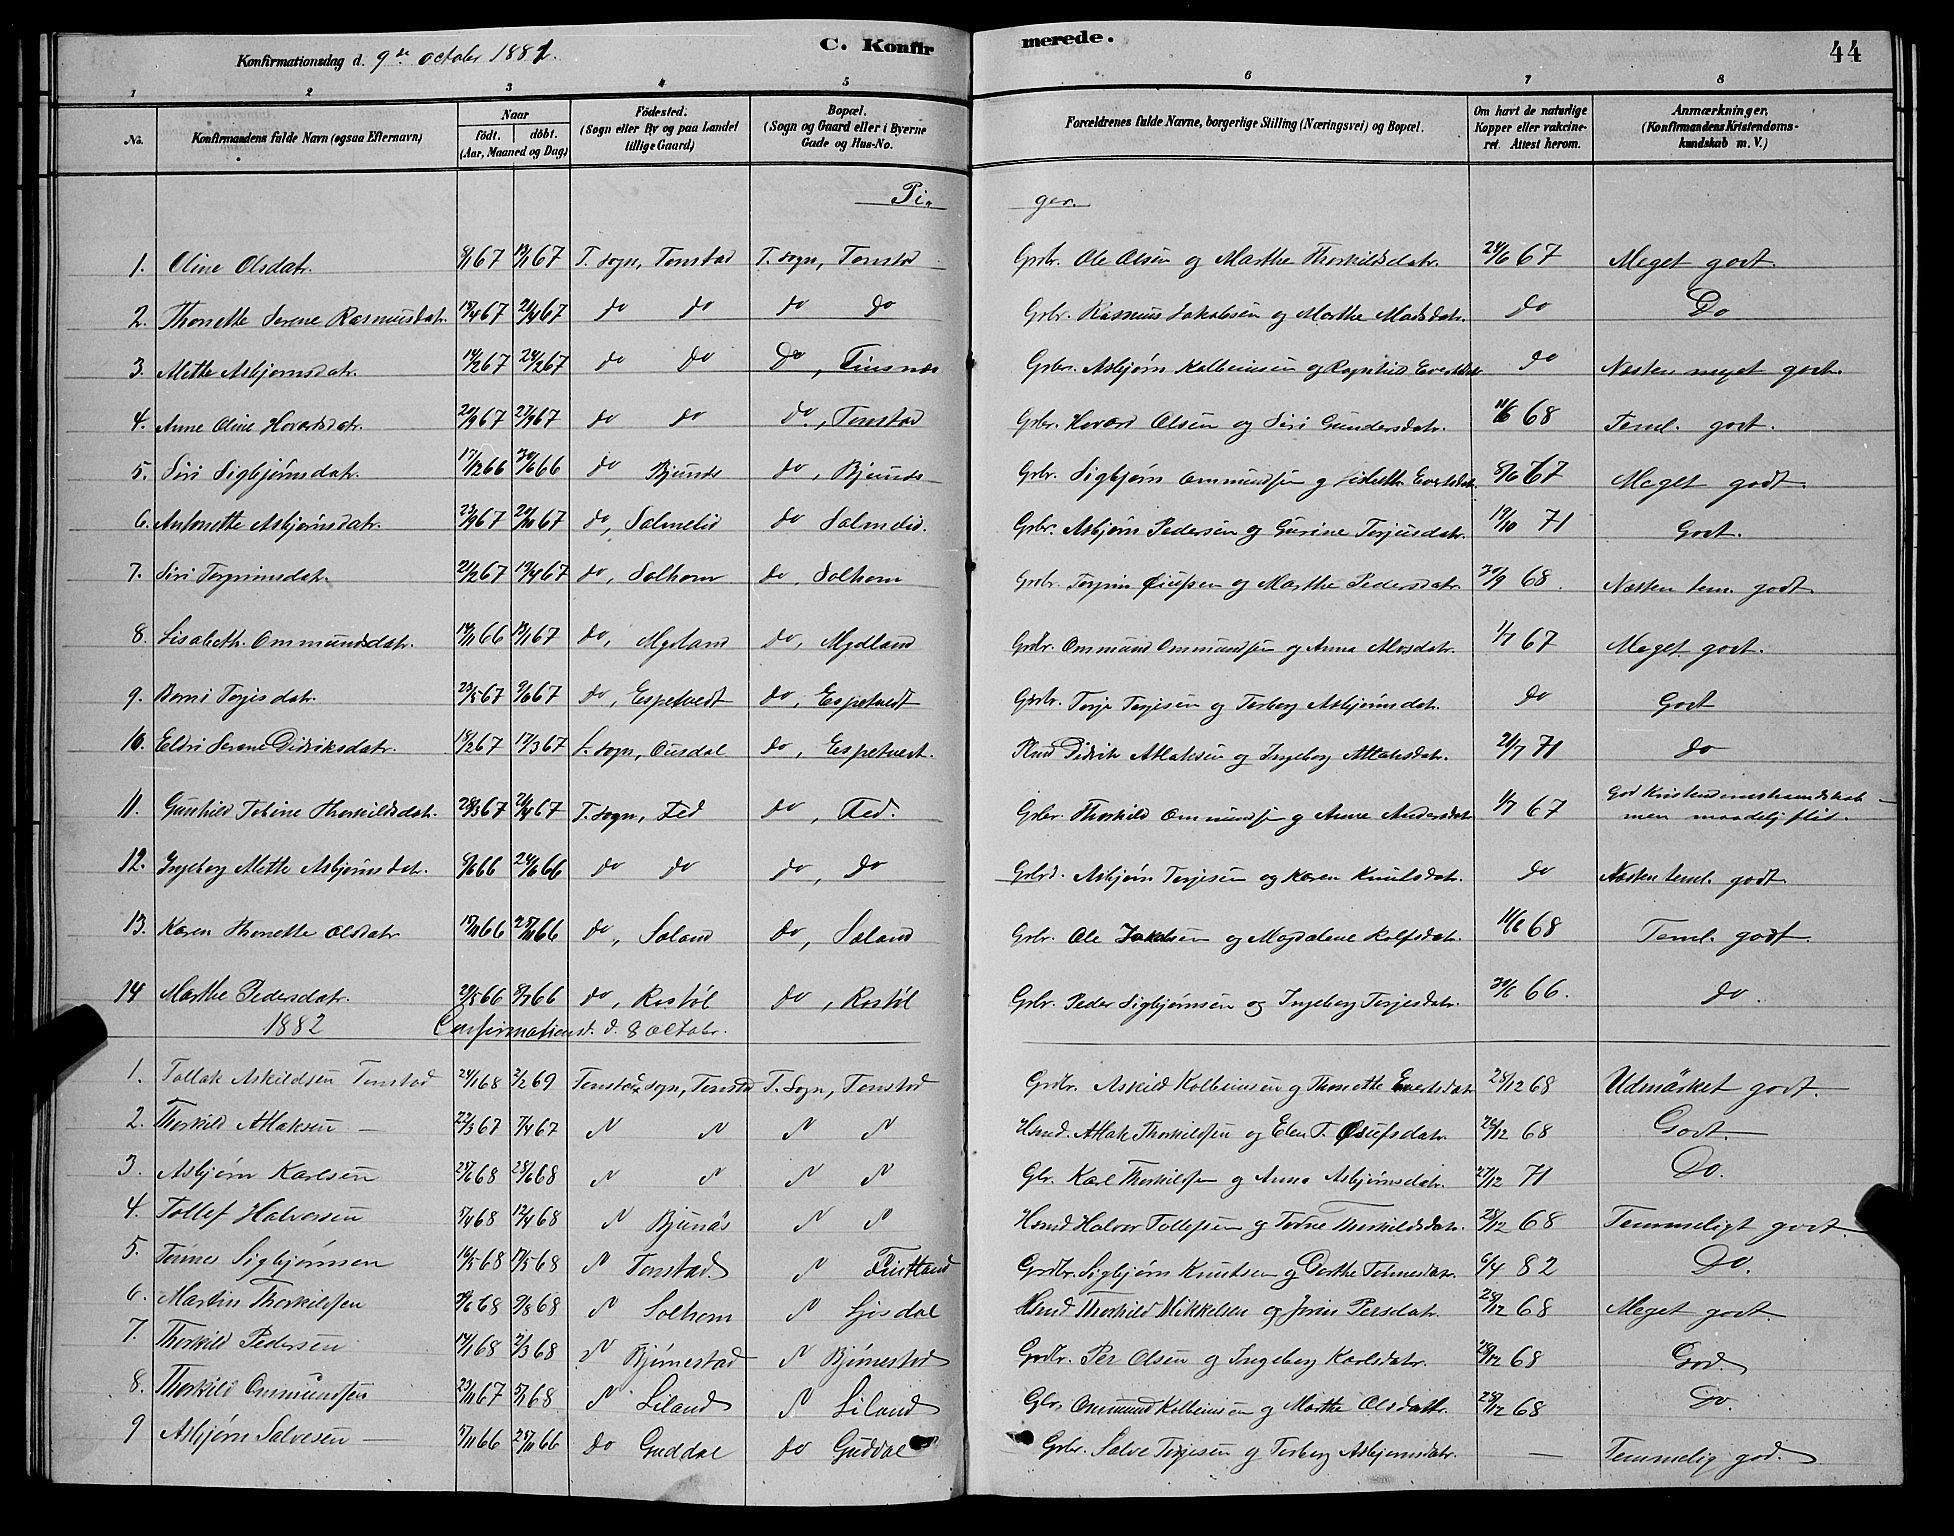 Konfirmationsdag d. 9de october 1881. C. Konfirmerede. 44
1 2 3 4 5 6 7 8
No. Konfirmandens fulde Navn (ogsaa Efternavn) Naar födt. döbt. (Aar, Maaned og Dag) Födested. (Sogn eller By og paa Landet tillige Gaard) Bopæl. (Sogn og Gaard eller i Byerne Gade og Hus-No. Forældrenes fulde Navne, borgerlige Stilling (Næringsvei) og Bopæl. Om havt de naturlige Kopper eller vakcineret. Attest herom. Anmærkninger, (Konfirmandens Kristendomskundskab m. V.)
Piger.
1. Oline Olsdatr. 8/1 67 13/1 67 T. sogn, Tonstad T. sogn, Tonstad Grbr. Ole Olsen og Marthe Thorkildsdatr. 24/6 67 Meget godt.
2. Thonette Serene Rasmusdatr. 15/4 67 21/4 67 do do do do Grbr. Rasmus Jakobsen og Marthe Madsdatr. do Do
3. Mette Asbjørnsdatr. 14/2 67 24/2 67 do do Do, Finsnæs Grbr. Asbjørn Kolbeinsen og Ragnhild Evertsdatr do Næsten meget godt.
4. Anne Oline Hovardsdatr. 20/9 67 27/9 67 do do do., Tonstad Grbr. Hovard Olsen og Siri Gundersdatr. 11/6 68 Teml. godt.
5. Siri Sigbjørnsdatr. 17/12 66 30/12 66 do Bjunes do, Bjunes Grbr. Sigbjørn Ommundsen og Lisbeth Evertsdatr. 8/6 67 Meget godt.
6. Antonette Asbjørnsdatr. 23/9 67 20/10 67 do, Salmelid do Salmelid. Grbr. Asbjørn Pedersen og Gurine Terjesdatr. 12/10 71 Godt.
7. Siri Torgrimsdatr. 21/2 67 19/4 67 do, Solhom do, Solhom Grbr. Torgrim Osufsen og Marthe Pedersdatr. 30/9 68. Næsten tem. godt.
8. Lisabeth Ommundsdatr. 18/11 66 13/1 67 do, Mydland do, Mydland Grbr. Ommund Ommundsen og Anna Alvsdatr. 1/7 67 Meget godt.
9. Berni Terjesdatr. 23/5 67 9/6 67 do, Espetvedt do, Espetvedt Grbr. Terje Terjesen og Torborg Asbjørnsdatr. do Godt
10. Eldri Serene Didriksdatr. 18/2 67 17/3 67 L. sogn, Ousdal do, Espetvedt. Plmd Didrik Atlaksen og Ingeborg Atlaksdatr. 21/7 71 do
11. Gunhild Tobine Thorkildsdatr. 28/3 67 21/4 67 T. sogn, Fed do, Fed. Grbr. Thorkild Ommundsen og Anne Andersdatr 1/7 67 God Kristendomskundskab men maadelig flid.
12. Ingeborg Mette Asbjørnsdatr. 8/6 66 24/6 66 do do do, do Grbr. Asbjørn Terjesen og Karen Knudsdatr. do Næsten teml. godt
13. Karen Thonette Olsdatr 15/11 66 25/11 66 do, Saland do, Saland Grbr. Ole Jakobsen og Magdalene Rolfsdatr. 11/6 68 Teml. godt.
14 Marthe Pedersdatr. 29/5 66 8/7 66 do, Rostøl do, Rostøl Grbr. Peder Sigbjørnsen og Ingeborg Terjesdatr. 30/6 66. do.
1882 Confirmationsd. d. 8 Octobr.
1. Tollak Askildsen Tonstad 24/1 68 2/2 69 Tonstad sogn, Tonstad T. Sogn, Tonstad Grdbr. Askild Kolbeinsen og Thonette Evertsdatr 28/12 68 Udmærket godt.
2. Thorkild Atlaksen — 22/3 67 7/4 67 〃 〃 〃 〃 Hsmd. Atlak Thorkildsen og Elen T. Osufsdatr 26/12 68 Godt.
3. Asbjørn Karlsen 25/6 68 28/6 68 〃 〃 〃 〃 Gbr. Karl Thorkildsen og Anna Asbjørnsdatr. 27/12 71 Do.
4. Tollef Halvorsen 5/4 68 12/4 68 〃 Bjunæs 〃 〃 Hsmd Halvor Tollefsen og Todne Thorkildsdatr. 28/12 68 Temmeligt godt.
5. Tønnes Sigbjørnsen 16/5 68 17/5 68 〃 Tonstad 〃 Fintland Grdbr. Sigbjørn Knutsen og Dorthe Tønnesdatr. 6/4 82 Do.
6. Martin Thorkildsen 9/6 68 9/8 68 〃 Solhom 〃 Gjosdal Hsmd Thorkild Mikkelsen og Josine Persdatr. 28/12 68 Meget godt.
7. Thorkild Pedersen 14/1 68 2/3 68 〃 Bjørnestad 〃 Bjørnestad Grdbr. Per Olsen og Ingeborg Karlsdatr. 28/12 68 God
8. Thorkild Ommundsen 23/11 67 5/1 68 〃 Liland 〃 Liland Gbr. Ommund Kolbeinsen og Marthe Olsdattr. 28/12 68 Do.
9 Asbjørn Salvesen — 5/11 66 25/11 66 do Guddal do Guddal Grbr. Salve Terjesen og Torborg Asbjørnsdatr. — Temmelig god.